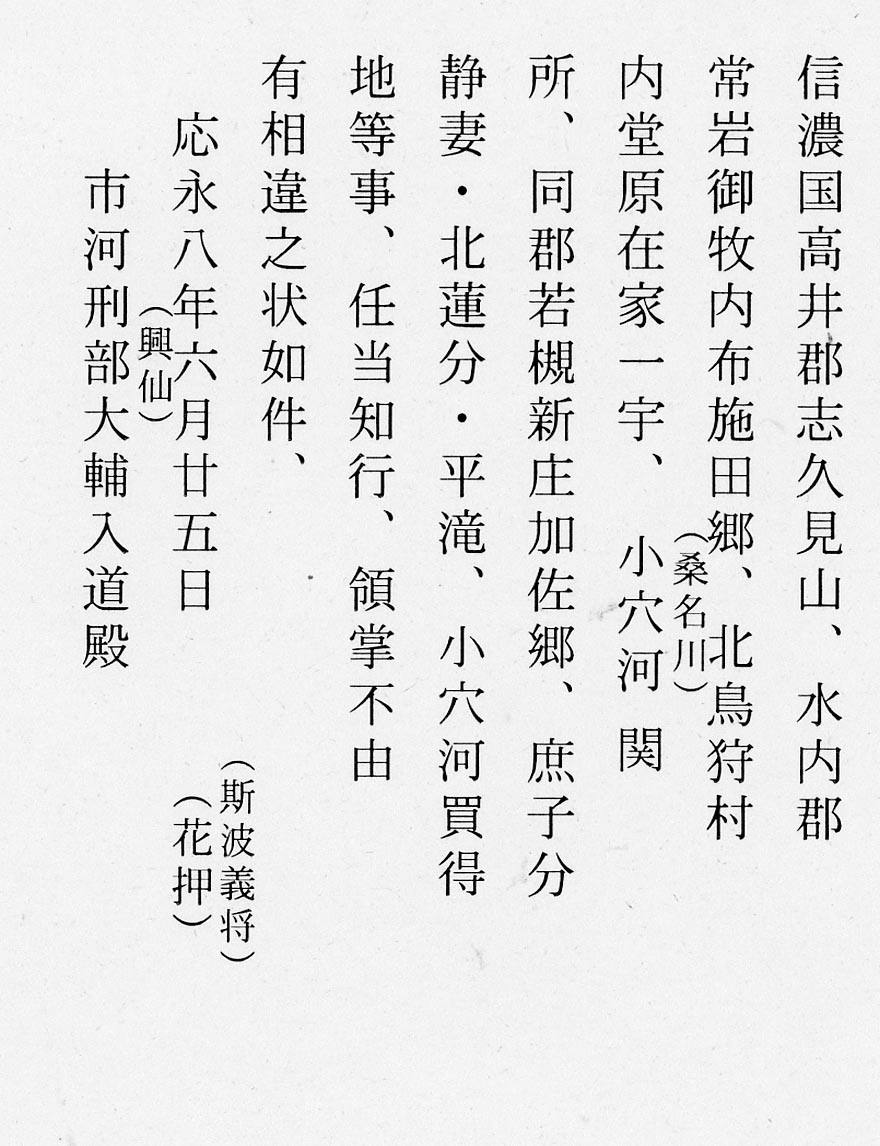 信濃国高井郡志久見山、水内郡
常岩御牧内布施田郷、北鳥狩村
(桑名川)
内堂原在家一宇、小穴河関
所、同郡若槻新庄加佐郷、庶子分
静妻・北蓮分・平滝、小穴河買得
地等事、任当知行、領掌不由
有相違之状如件、
(斯波義将)
応永八年六月廿五日 (花押)
(興仙)
市河刑部大輔入道殿